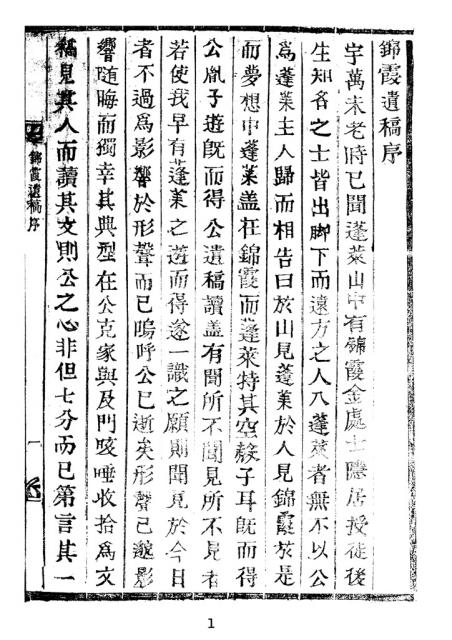 錦霞遺稿序
宇萬未老時已聞蓬萊山中有錦霞金處士隱居授徒後
生知名之士皆出脚下而遠方之人入蓬萊者無不以公
爲蓬萊主人歸而相告曰於山見蓬萊於人見錦霞於是
而夢想中蓬萊盖在錦霞而蓬萊特其空殼子耳旣而得
公胤子遊旣而得公遺稿讀盖有聞所不聞見所不見者
若使我早有蓬萊之遊而得遂一識之願則聞見於今日
者不過爲影響於形聲而已嗚呼公已逝矣形聲已邈影
響随晦而獨幸其典型在公克家與及門咳唾收拾爲文
稿見其人而讀其文則公之心非但七分而已第言其一
錦霞遺稿序
一
1